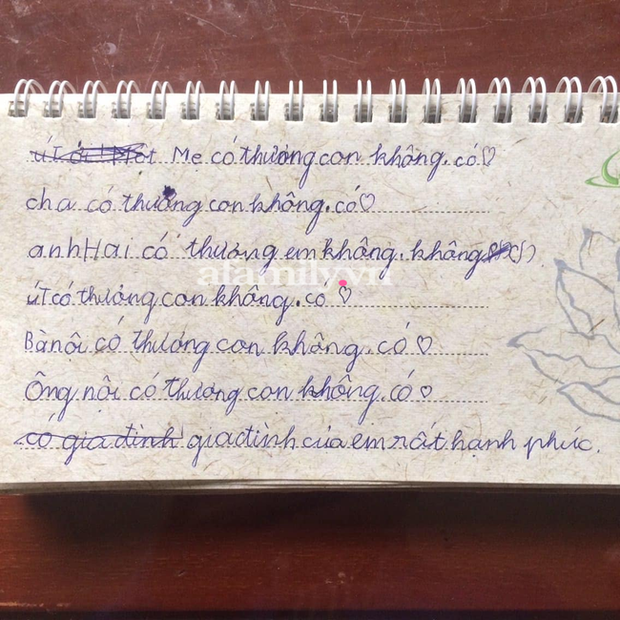 Mẹ có thương con không. có♡
cha có thương con không. có♡
anh Hai có thương em không. không
út có thương con không. có♡
Bà nôi có thương con không. có♡
Ông nội có thương con không. có♡
có gia đình gia đình của em rất hạnh phúc.
afamily.vn